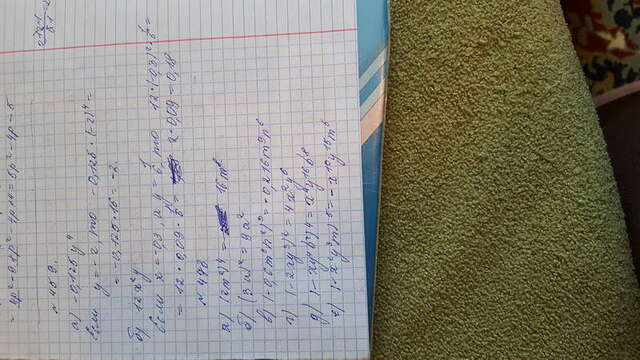 = 9p² - 9 + p² - 4p + 4 = 5p² - 4p - 5
№ 459.
а) -0,125y⁴
Если y = -2, то -0,125 · (-2)⁴ =
= -0,125 · 16 = -2.
б) 12x²y
Если x = -0,3, а y = 1/6, то 12 · (-0,3)² · 1/6 =
= 12 · 0,09 · 1/6 = 2 · 0,09 = 0,18
№ 498
а) (2m²)⁴ = 16m⁸
б) (3a)² = 9a²
в) (-0,6m³n²)³ = -0,216m⁹n⁶
г) (-2xy³)² = 4x²y⁶
д) (-xy⁴b²)⁴ = x⁴y¹⁶b⁸
е) (-x²y³m)⁵ = -x¹⁰y¹⁵m⁵